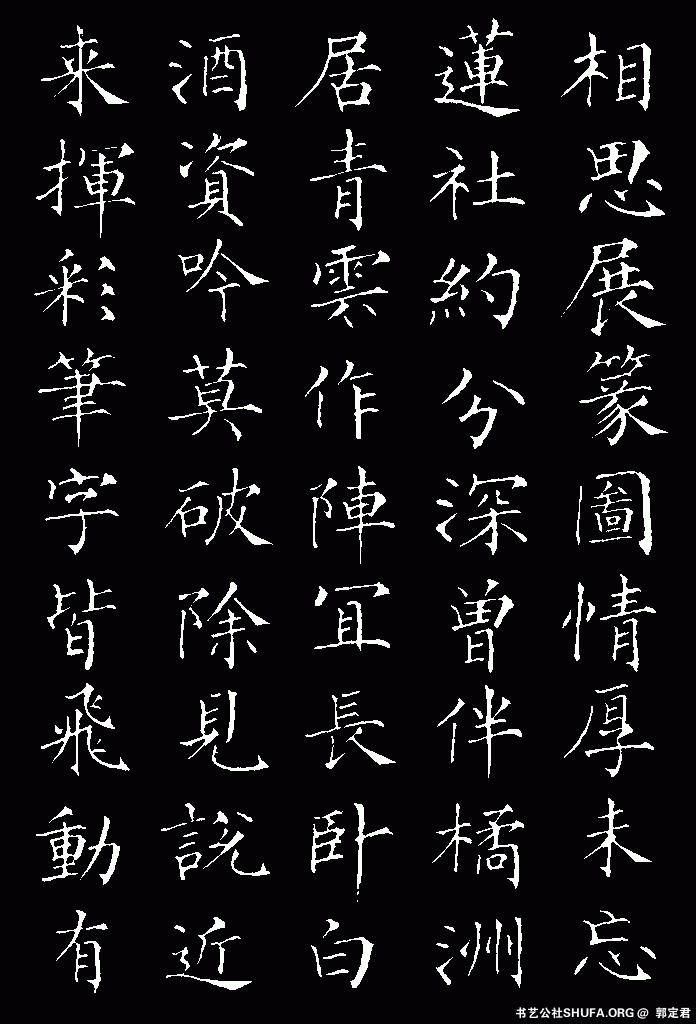 相思展篆圖情厚未忘
蓮社約分深曽伴橘洲
居青雲作陣冝長卧白
酒資吟莫破除見説近
来揮彩筆字皆飛動有
书艺公社SHUFA.ORG @ 郭定君